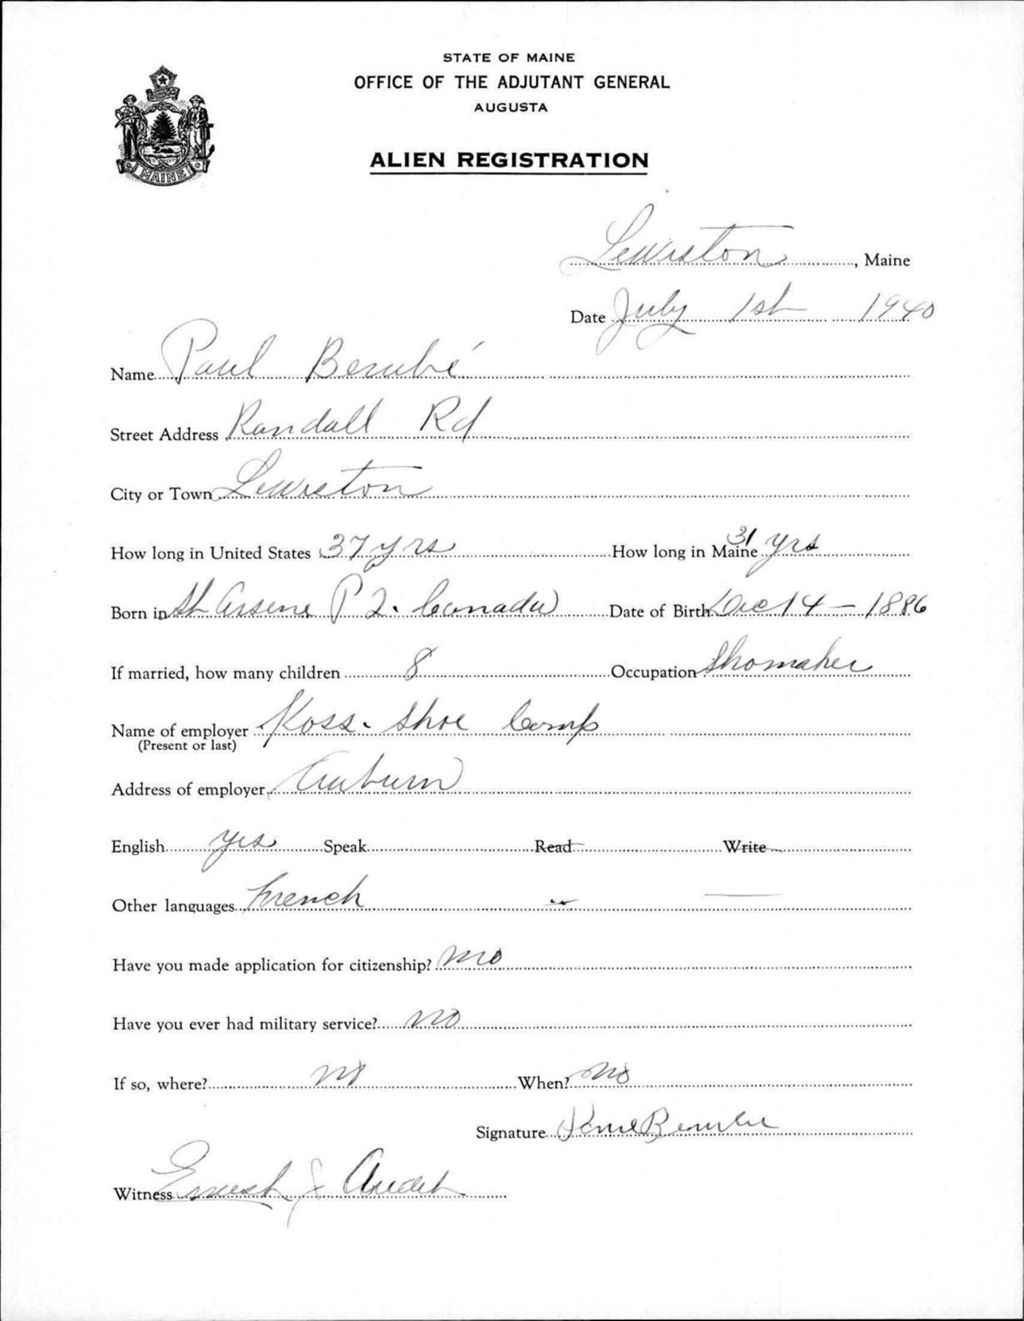 STATE OF MAINE
OFFICE OF THE ADJUTANT GENERAL
AUGUSTA
MAINE
ALIEN REGISTRATION
Lewiston, Maine
Date July 1st 1940
Name Paul Berubé
Street Address Randall Rd
City or Town Lewiston
How long in United States 37 yrs How long in Maine 31 yrs
Born in St Arsene P Q. Canada Date of Birth Dec 14 - 1886
If married, how many children 8 Occupation Shomaker
Name of employer Koss. Shoe Comp
(Present or last)
Address of employer Auburn
English yes Speak Read Write
Other languages French " —
Have you made application for citizenship? no
Have you ever had military service? no
If so, where? no When? no
Signature Berube
Witness Ernest J Audet